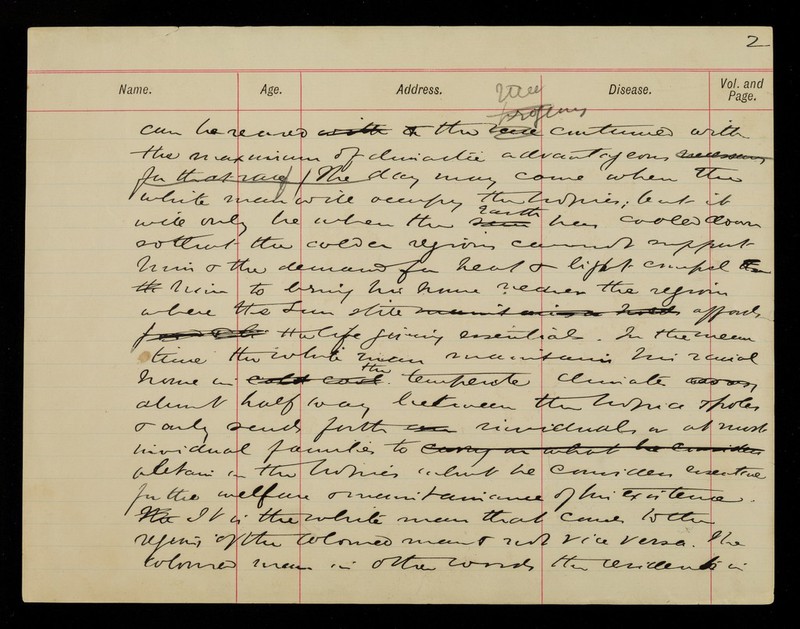 2
Name. Age. Address. Disease. Vol. and Page.
progeny
can be reared with & the race continued with
the maximum of climatic advantageous necessary
for that race / The day may come when the
white man will occupy the tropics; but it
earth
will only be when the sun has cooled down
so that the colder regions cannot support
him & the demand for heat & light compel
him to bring his home nearer the region
where the Sun still maintains a hold affords
the life giving essentials. In the mean
time the white man maintains his racial
the
home in cold cool temperate climate
about half way between the tropics & poles
& only sends forth individuals or at most
individual families to carry on what he considers
obtain in the tropics what he considers essential
for the welfare & maintainance of his existence.
The It is the white man that comes to the
regions of the coloured man & not vice versa. The
coloured man in other words the residents in